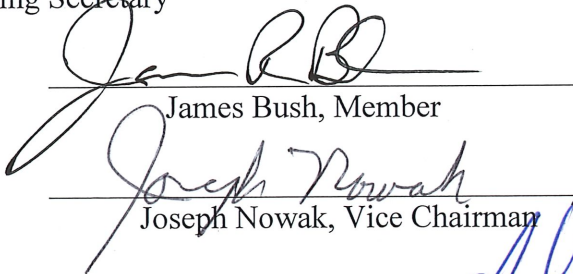 Secretary
James R B
James Bush, Member
Joseph Nowak
Joseph Nowak, Vice Chairman